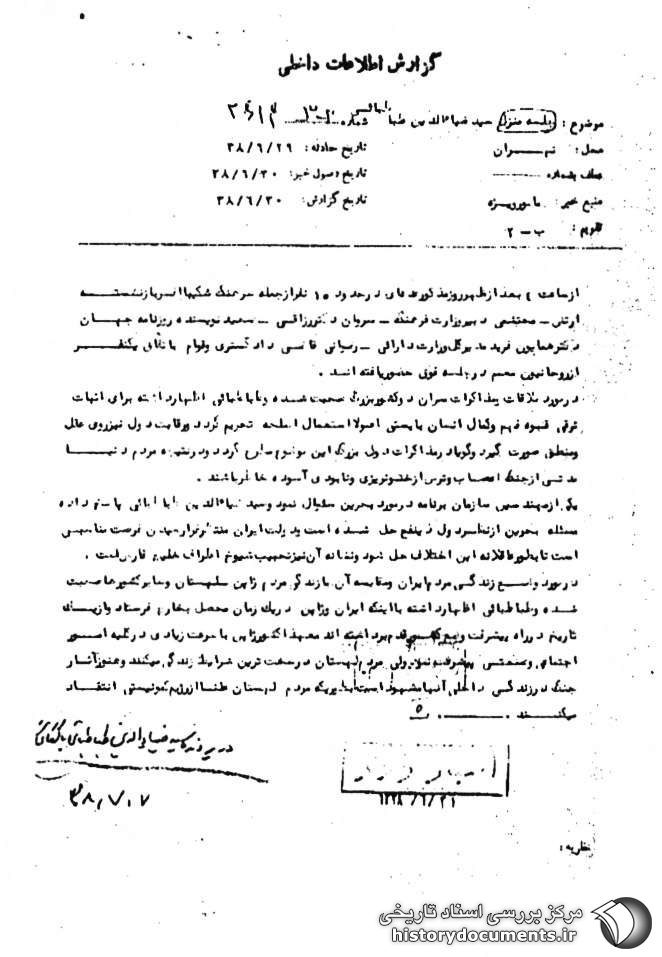 گزارش اطلاعات داخلی
موضوع : جلسه منزل سید ضیاءالدین طباطبائی شماره
محل : تهران تاریخ حادثه : ۳۸/۶/۲۹
عطف بشماره تاریخ وصول خبر : ۳۸/۶/۳۰
منبع خبر : مامور ویژه تاریخ گزارش : ۳۸/۶/۳۰
تقویم : ب - ۲
از ساعت ٤ بعد از ظهر روز مذکور عده‌ای در حدود ۱۵ نفر از جمله سرهنگ شکیبا افسر بازنشسته
ارتش - محتشمی دبیر وزارت فرهنگ - سروان دکتر رزاقی - سعید نویسنده روزنامه جهان
دکتر همایون فرید مدیر کل وزارت دارائی - رسبانی قاضی دادگستری وقوام باتفاق یکنفر
از روحانیون معمم در جلسه فوق حضور یافته اند .
در مورد ملاقات ومذاکرات سران دوکشور بزرگ صحبت شده وطباطبائی اظهار داشته برای اثبات
ترقی قوه فهم وکمال انسان بایستی اصولا استعمال اسلحه تحریم گردد ورقابت دول نیز روی عقل
ومنطق صورت گیرد وگویا در مذاکرات دول بزرگ این موضوع مطرح گردد ودر نتیجه مردم دنیا
مدتی از جنگ اعصاب وترس از خونریزی ونابودی آسوده خاطر باشند .
یکی از مهندسین سازمان برنامه در مورد بحرین سئوال نمود وسید ضیاءالدین طباطبائی پاسخ داده
مسئله بحرین از نظر دول ذینفع حل شده است ودولت ایران منتظر فرا رسیدن فرصت مناسبی
است تا بطور عاقلانه این اختلاف حل شود ونشانه آن نیز تحبیب شیوخ اطراف خلیج فارس است .
در مورد وضع زندگی مردم ایران ومقایسه آن با زندگی مردم ژاپن - لهستان وسایر کشورها صحبت
شده وطباطبائی اظهار داشته با اینکه ایران وژاپن در یک زمان محصل بخارج فرستاد واز یک
تاریخ در راه پیشرفت وضع کشور قدم برداشته اند معهذا کشور ژاپن با سرعت زیادی در کلیه امور
اجتماعی وصنعتی پیشرفت نمود ولی مردم لهستان در سخت ترین شرایط زندگی میکنند وهنوز آثار
جنگ در زندگی داخلی آنها مشهود است بطوریکه مردم لهستان علنا از رژیم کمونیستی انتقاد
میکنند . ه
در پرونده سید ضیاءالدین طباطبائی بایگانی
۳۸/۷/۷
۱۳۳۸/۶/۳۱
نظریه :
مرکز بررسی اسناد تاریخی
historydocuments.ir